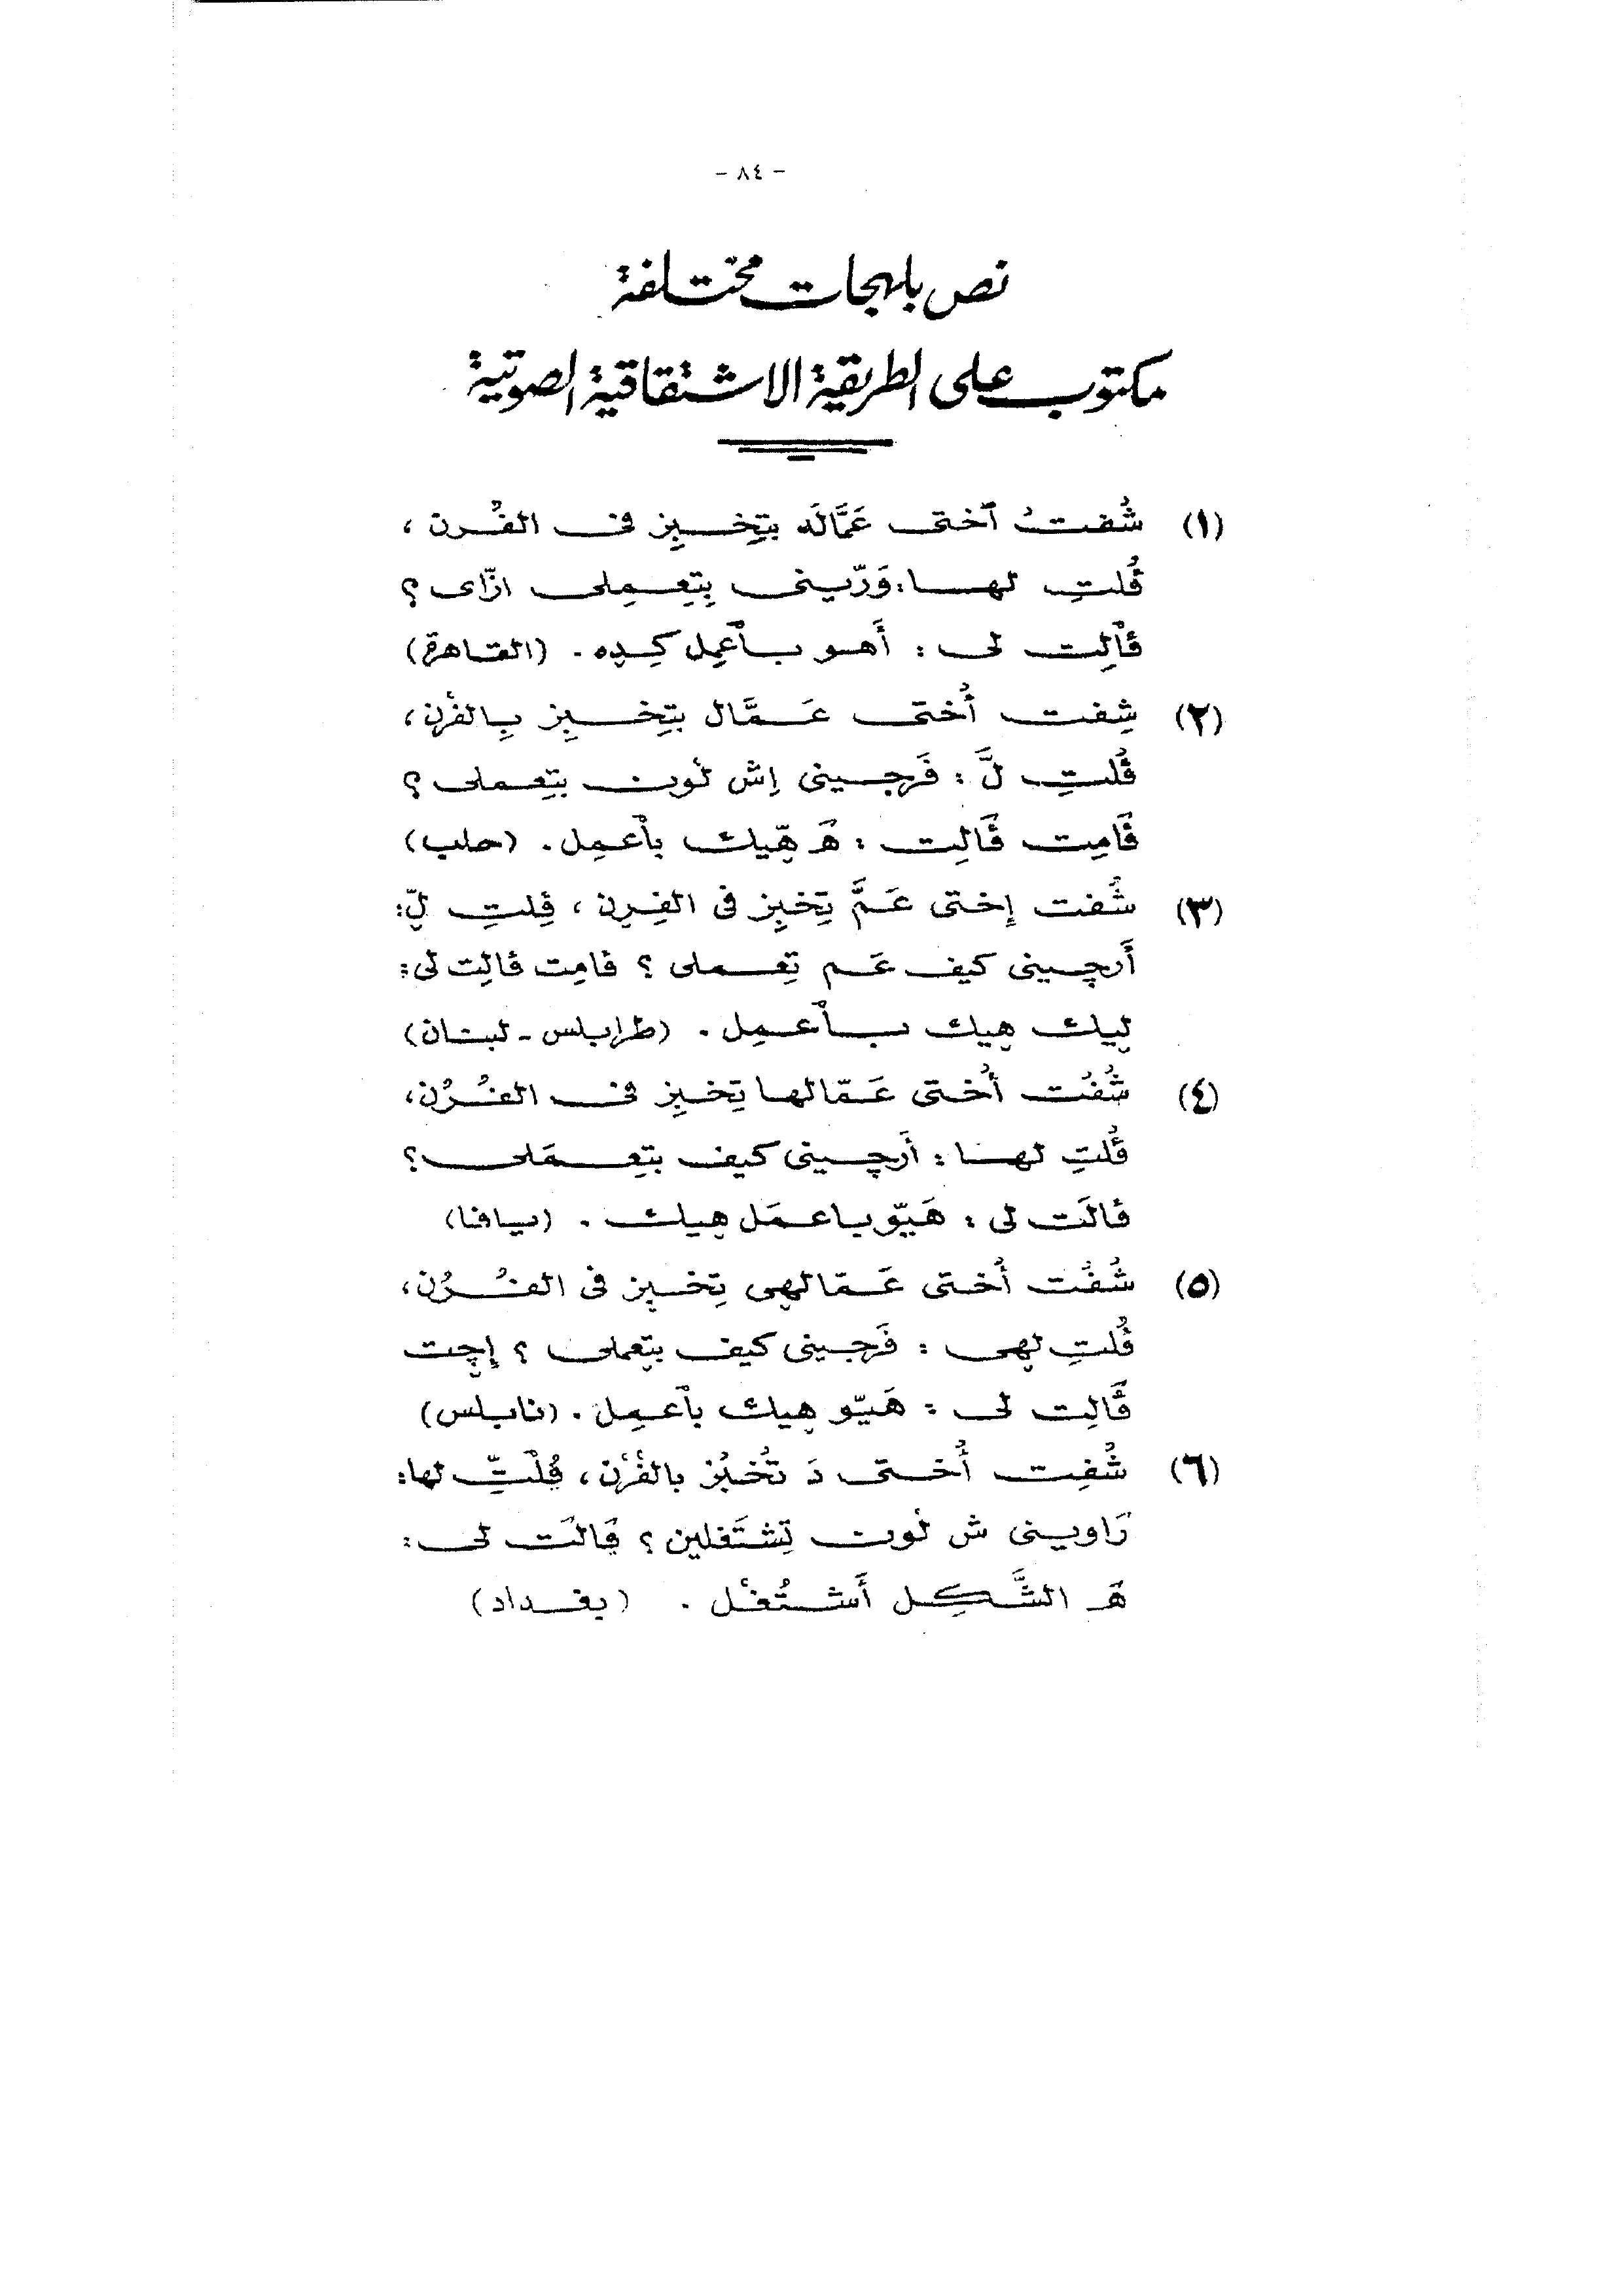 - ٨٤ -
نص بلهجات مختلفة
مكتوب على الطريقة الاشتقاقية الصوتية
(١) شُفتُ أختى عَمَّالَه بتِخبِز فى الفُرن ،
قُلتِ لها : وَرّينى بِتِعمِلى ازّاى ؟
قالِت لى : أَهو باعمِل كِدِه . (القاهرة)
(٢) شِفت أُختى عَمَّال بتِخبِز بِالفرن ،
قُلتِ لَّ : فَرجينى إش لون بتِعملى ؟
قَامِت قَالِت : هَـ هّيك بأعمِل . (حلب)
(٣) شُفت إختى عَمَّ تِخبِز فى الفِرِن ، قِلتِ لّ :
أَرچينى كيف عَم تِعملى ؟ قامِت قالِت لى :
ليك هيك بأعمِل . (طرابلس - لبنان)
(٤) شُفُت أُختى عَمّالها تِخبِز فى الفُرُن ،
قُلتِ لها : أَرچينى كيف بتِعمَلى ؟
قالَت لى : هَيّو باعمَل هيك . (يافا)
(٥) شُفُت أُختى عَمّالهِى تِخبِز فى الفُرُن ،
قُلتِ لهِى : فَرجينى كيف بتِعملى ؟ إچت
قَالِت لى : هَيّو هيك بأعمِل . (نابلس)
(٦) شُفِت أُختى دَ تُخبُز بالفُرن ، قُلْتِّ لها :
رَاوينى ش لون تِشتَغلين ؟ قَالَت لى :
هَـ الشَّكِل أَشتُغل . (بغداد)